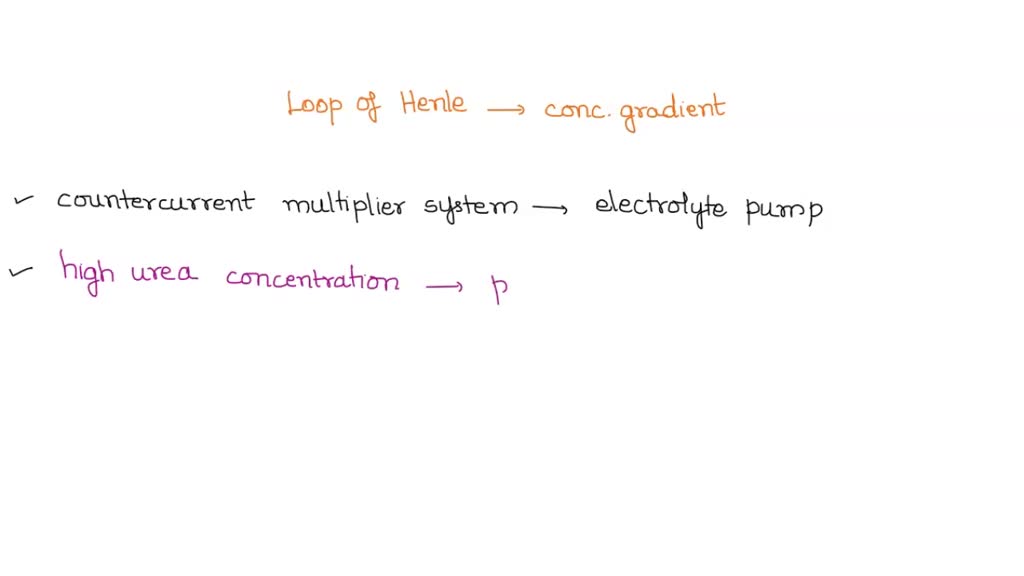 Loop of Henle → conc. gradient
✓ countercurrent multiplier system → electrolyte pump
✓ high urea concentration → p